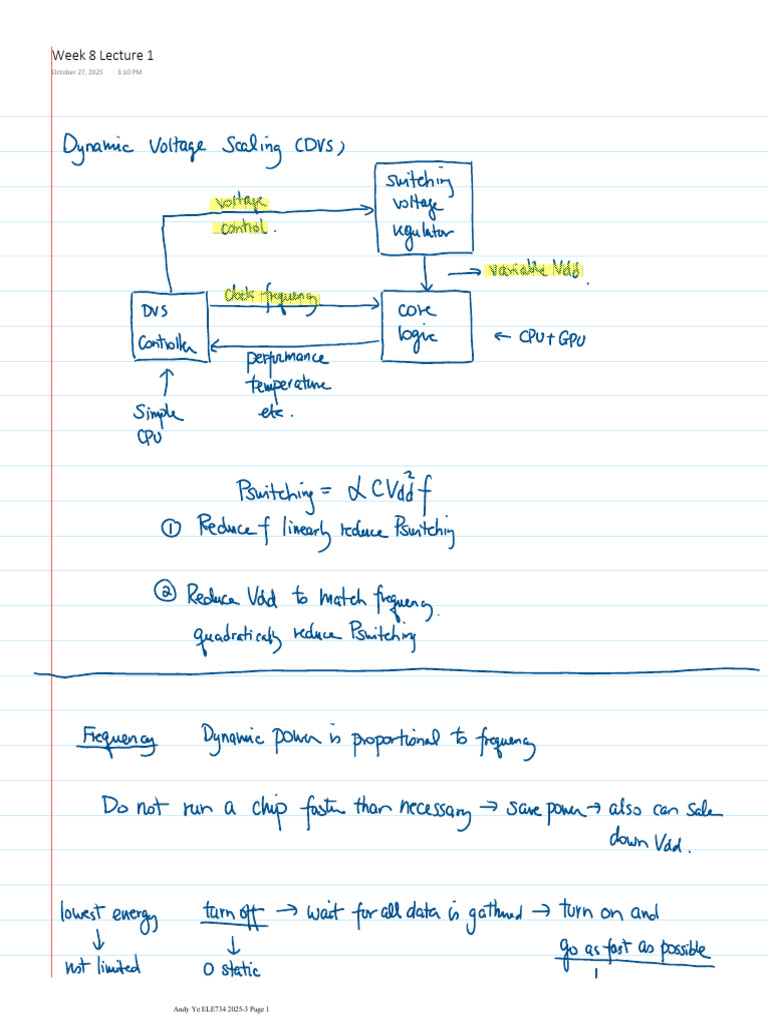 Week 8 Lecture 1
October 27, 2025 3:10 PM
Dynamic Voltage Scaling (DVS)
switching
voltage
regulator
voltage
control.
→ variable Vdd.
clock frequency
DVS
Controller
core
logic
← CPU + GPU
performance
temperature
etc.
↑
Simple
CPU
Pswitching = αCVdd²f
① Reduce f linearly reduce Pswitching
② Reduce Vdd to match frequency.
quadratically reduce Pswitching
Frequency Dynamic power is proportional to frequency
Do not run a chip faster than necessary → save power → also can scale
down Vdd.
lowest energy turn off → wait for all data is gathered → turn on and
go as fast as possible
not limited 0 static
Andy Ye ELE734 2025-3 Page 1